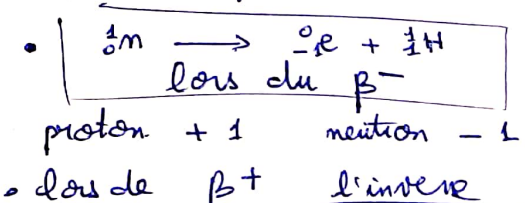 • ¹₀n ⟶ ⁰₋₁e + ¹₁H
lors du β⁻
proton + 1 neution - 1
• lors de β+ l'inverse